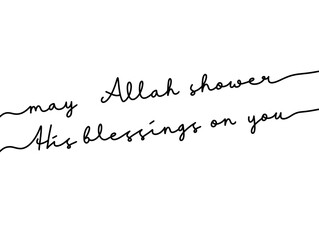 may Allah shower
His blessings on you